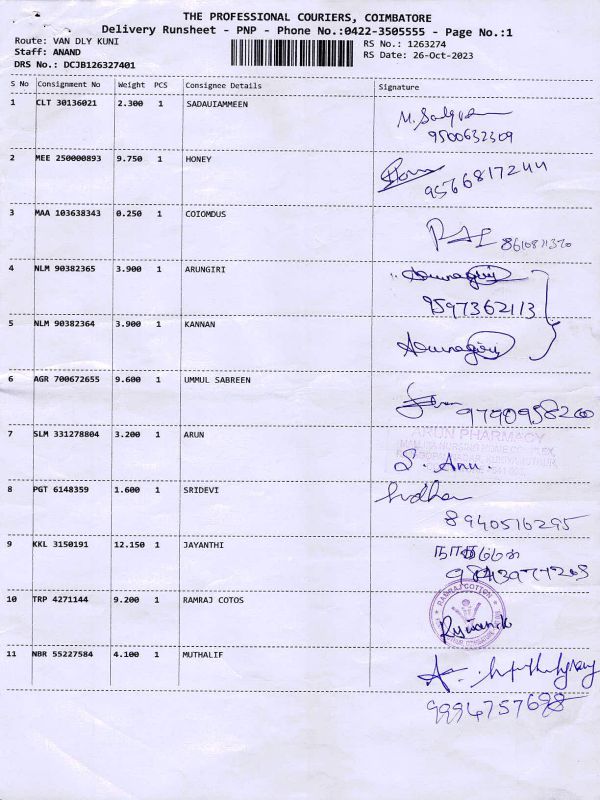 THE PROFESSIONAL COURIERS, COIMBATORE
Delivery Runsheet - PNP - Phone No.:0422-3505555 - Page No.:1
Route: VAN DLY KUNI
RS No.: 1263274
Staff: ANAND
RS Date: 26-Oct-2023
DRS No.: DCJB126327401
S No Consignment No Weight PCS Consignee Details Signature
1 CLT 30136021 2.300 1 SADAUIAMMEEN
9500632309
2 MEE 250000893 9.750 1 HONEY
9566817244
3 MAA 103638343 0.250 1 COIOMDUS
4 NLM 90382365 3.900 1 ARUNGIRI Arunagiri
9597362113
5 NLM 90382364 3.900 1 KANNAN Arunagiri
6 AGR 700672655 9.600 1 UMMUL SABREEN
9790958200
7 SLM 331278804 3.200 1 ARUN
ARUN PHARMACY
S. Anu.
8 PGT 6148359 1.600 1 SRIDEVI
8940516295
9 KKL 3150191 12.150 1 JAYANTHI
10 TRP 4271144 9.200 1 RAMRAJ COTOS
RAMRAJ COTTON
11 NBR 55227584 4.100 1 MUTHALIF